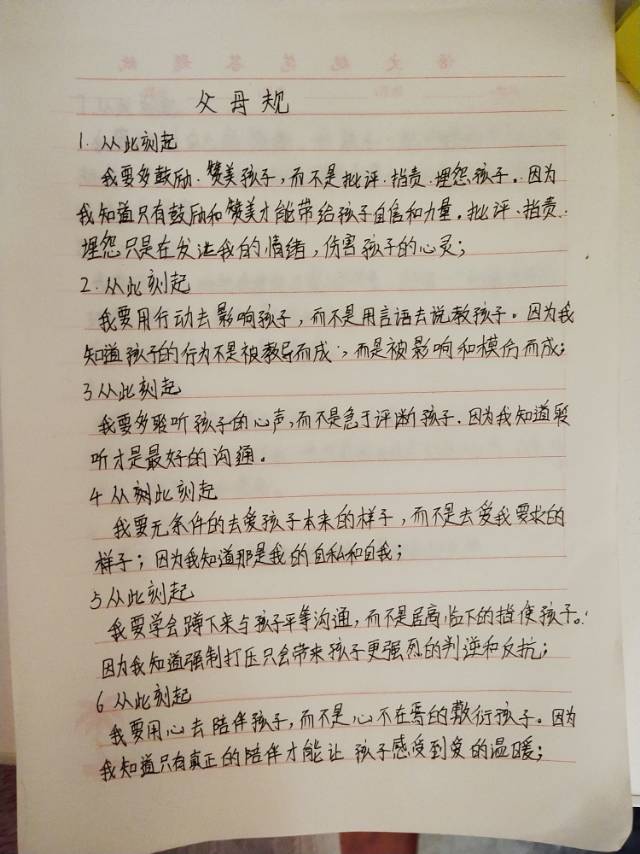 父母规
1. 从此刻起
我要多鼓励、赞美孩子,而不是批评、指责、埋怨孩子。因为
我知道只有鼓励和赞美才能带给孩子自信和力量。批评、指责、
埋怨只是在发泄我的情绪,伤害孩子的心灵;
2. 从此刻起
我要用行动去影响孩子,而不是用言语去说教孩子。因为我
知道孩子的行为不是被教导而成,而是被影响和模仿而成;
3 从此刻起
我要多聆听孩子的心声,而不是急于评断孩子.因为我知道聆
听才是最好的沟通。
4 从刻此刻起
我要无条件的去爱孩子本来的样子,而不是去爱我要求的
样子;因为我知道那是我的自私和自我;
5 从此刻起
我要学会蹲下来与孩子平等沟通,而不是居高临下的指使孩子。
因为我知道强制打压只会带来孩子更强烈的判逆和反抗;
6 从此刻起
我要用心去陪伴孩子,而不是心不在焉的敷衍孩子。因为
我知道只有真正的陪伴才能让孩子感受到爱的温暖;